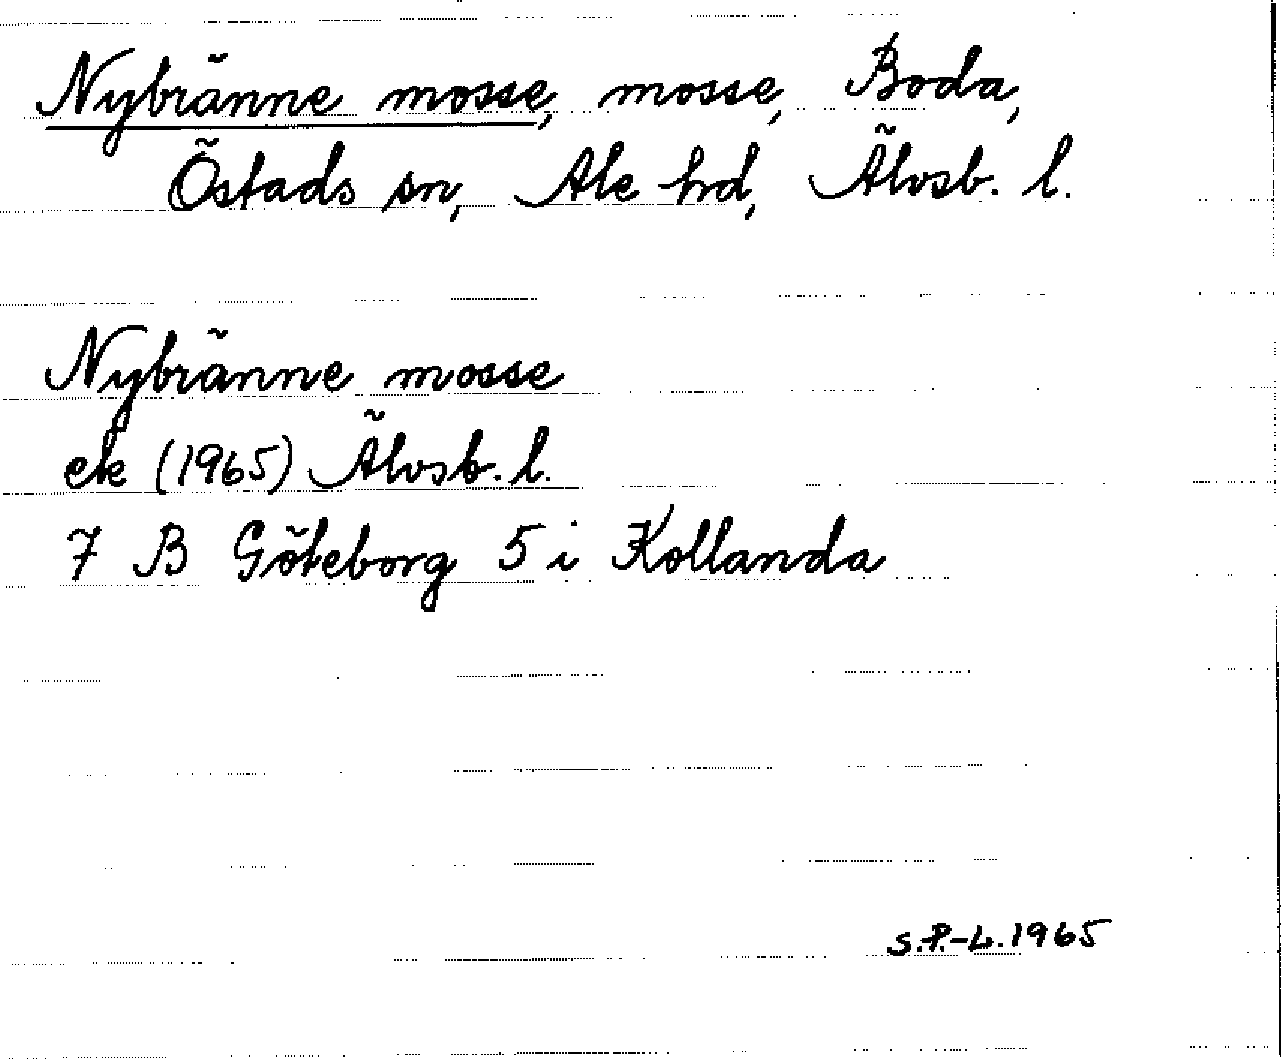 Nybränne mosse, mosse, Boda,
Östads sn, Ale hrd, Älvsb. l.
Nybränne mosse
ek (1965) Älvsb. l.
7 B Göteborg 5 i Kollanda
S.P.-L. 1965